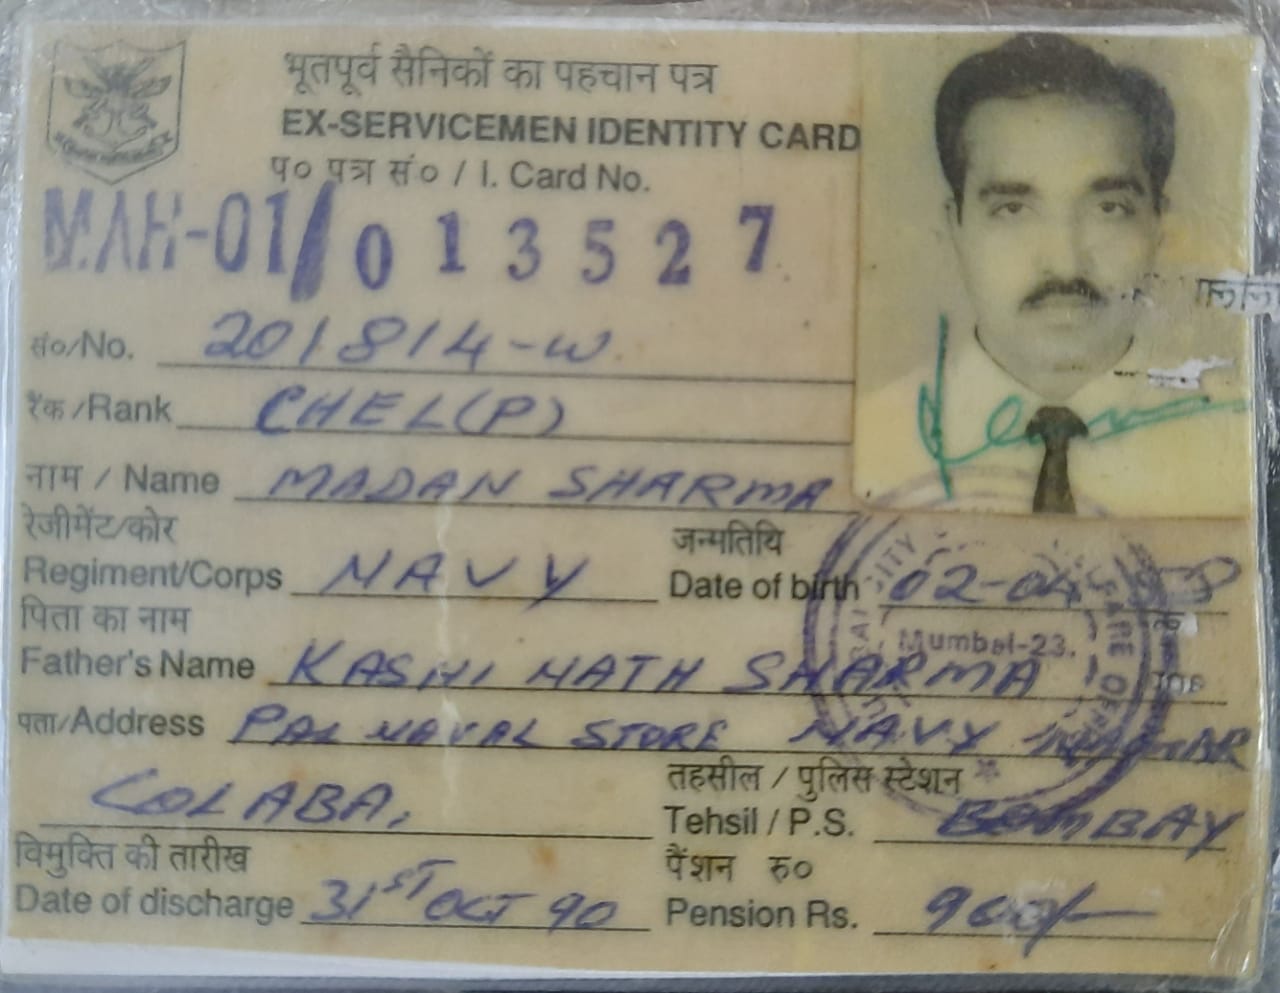 भूतपूर्व सैनिकों का पहचान पत्र
EX-SERVICEMEN IDENTITY CARD
प० पत्र सं० / I. Card No.
MAH-01/013527
सं०/No. 201814-W.
रैंक /Rank CHEL(P)
नाम / Name MADAN SHARMA
रेजीमेंट/कोर
Regiment/Corps NAVY
जन्मतिथि
Date of birth 02-04
पिता का नाम
Father's Name KASHI NATH SHARMA
Mumbai-23.
पता/Address PAL NAVAL STORE NAVY
COLABA,
तहसील / पुलिस स्टेशन
Tehsil / P.S. BOMBAY
विमुक्ति की तारीख
Date of discharge 31ST OCT 90
पैंशन रु०
Pension Rs. 900/-